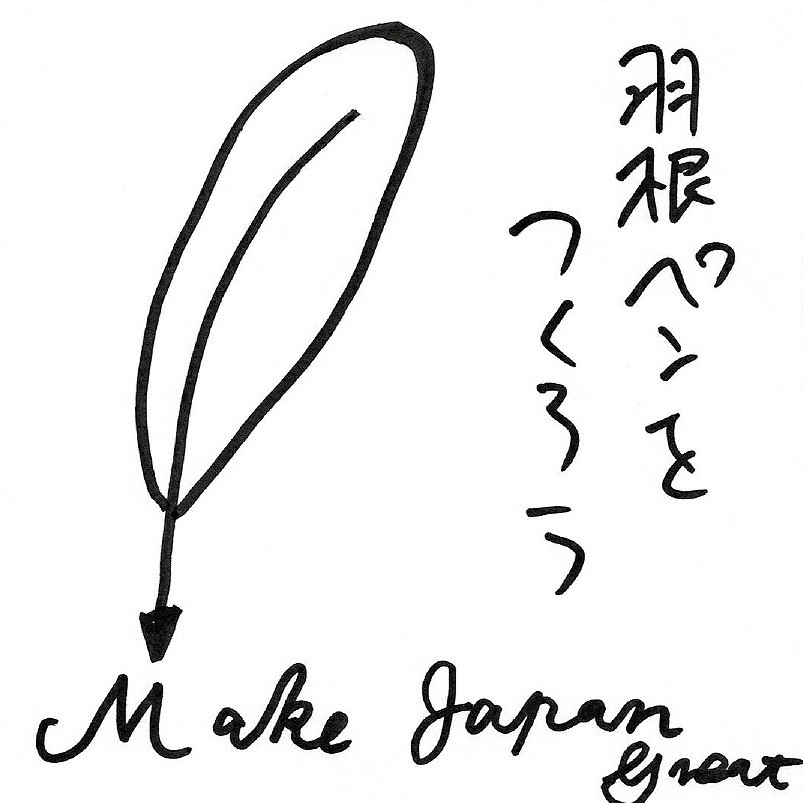 羽根ペンを
つくろう
Make Japan
Great